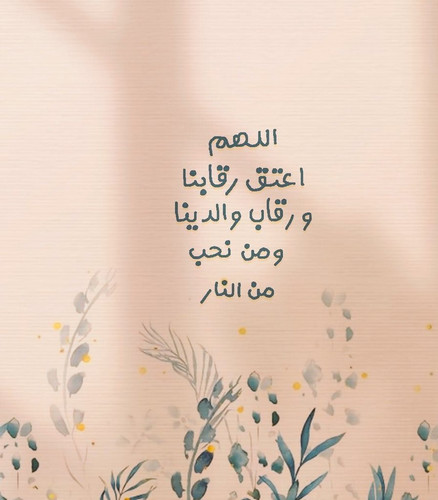 اللهم
اعتق رقابنا
و رقاب والدينا
ومن نحب
من النار